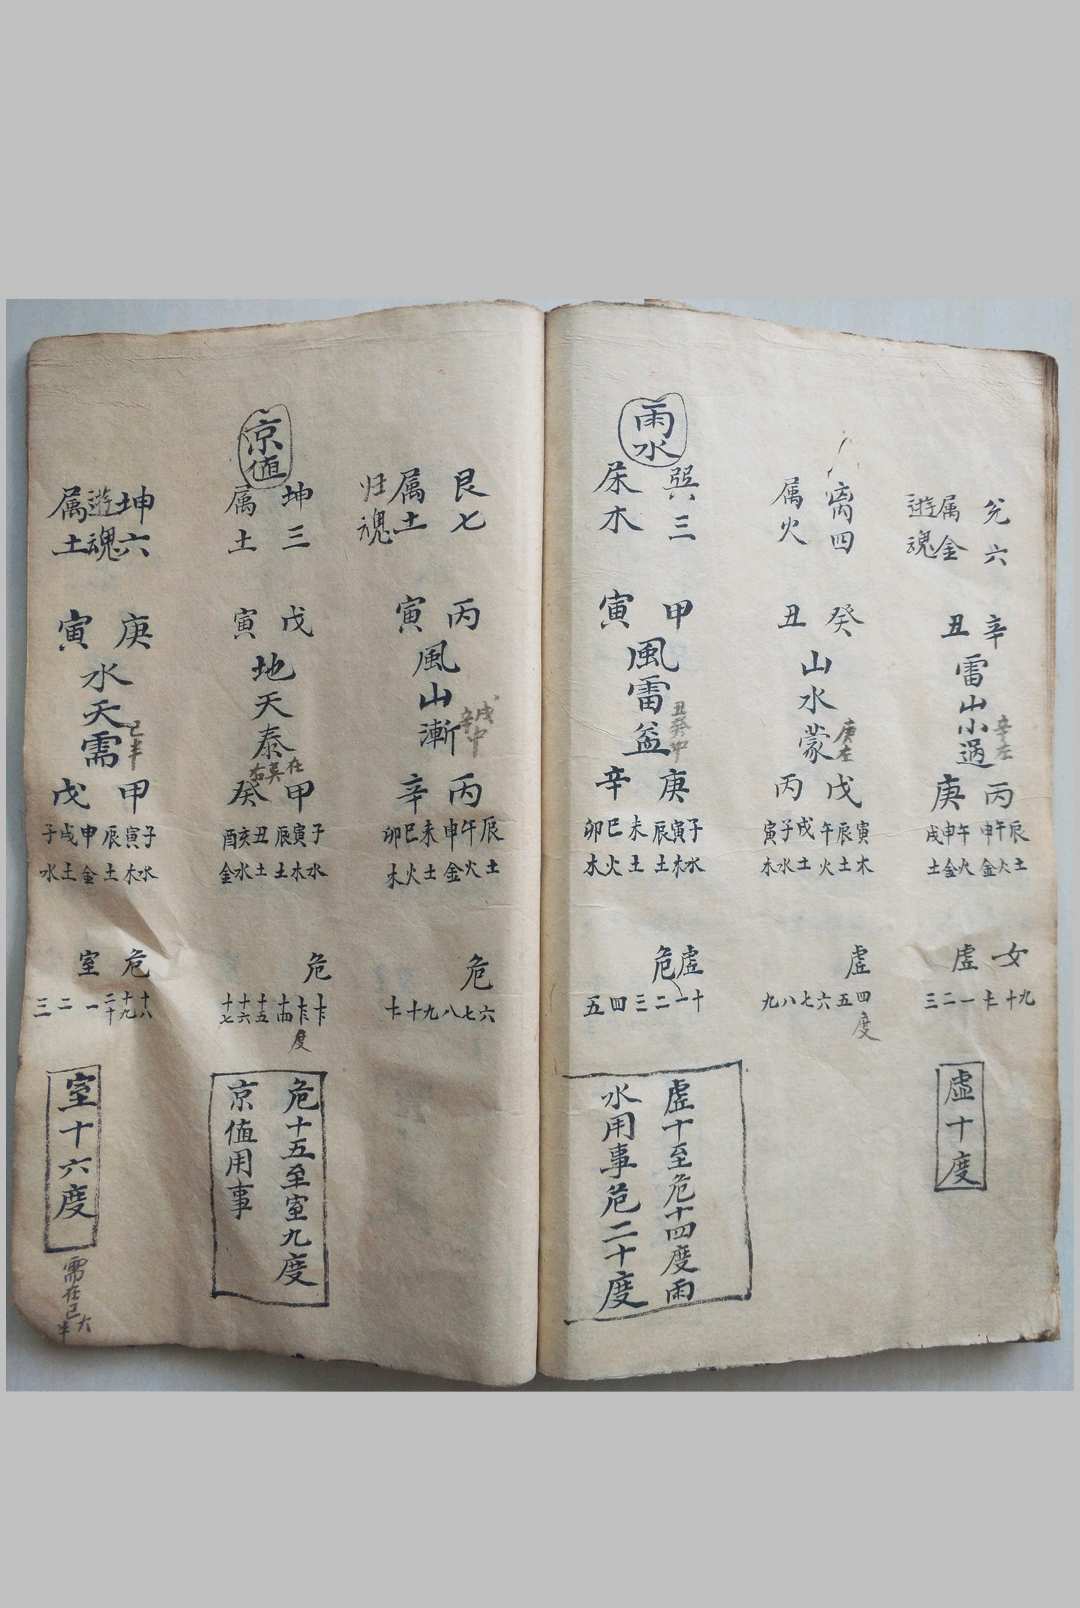 兑六
属金
遊魂
辛丑
雷山小過
辛左
丙庚
辰午申午申戌
土火金火金土
女虚
九十卡一二三
虚十度
离四
属火
癸丑
山水蒙
庚左
戊丙
寅辰午戌子寅
木土火土水木
虚
四五六七八九
度
雨水
巽三
属木
甲寅
風雷益
丑癸中
庚辛
子寅辰未巳卯
水木土土火木
虚危
十一二三四五
虚十至危十四度雨
水用事危二十度
艮七
属土
归魂
丙寅
風山漸
戌辛中
丙辛
辰午申未巳卯
土火金土火木
危
六七八九十卡
京值
坤三
属土
戊寅
地天泰
甲癸
子寅辰丑亥酉
水木土土水金
危
十五十六十七
度
危十五至室九度
京值用事
坤六
遊魂
属土
庚寅
水天需
巳半
甲戊
子寅辰申戌子
水木土金土水
危室
十八十九二十一二三
室十六度
需在巳
半